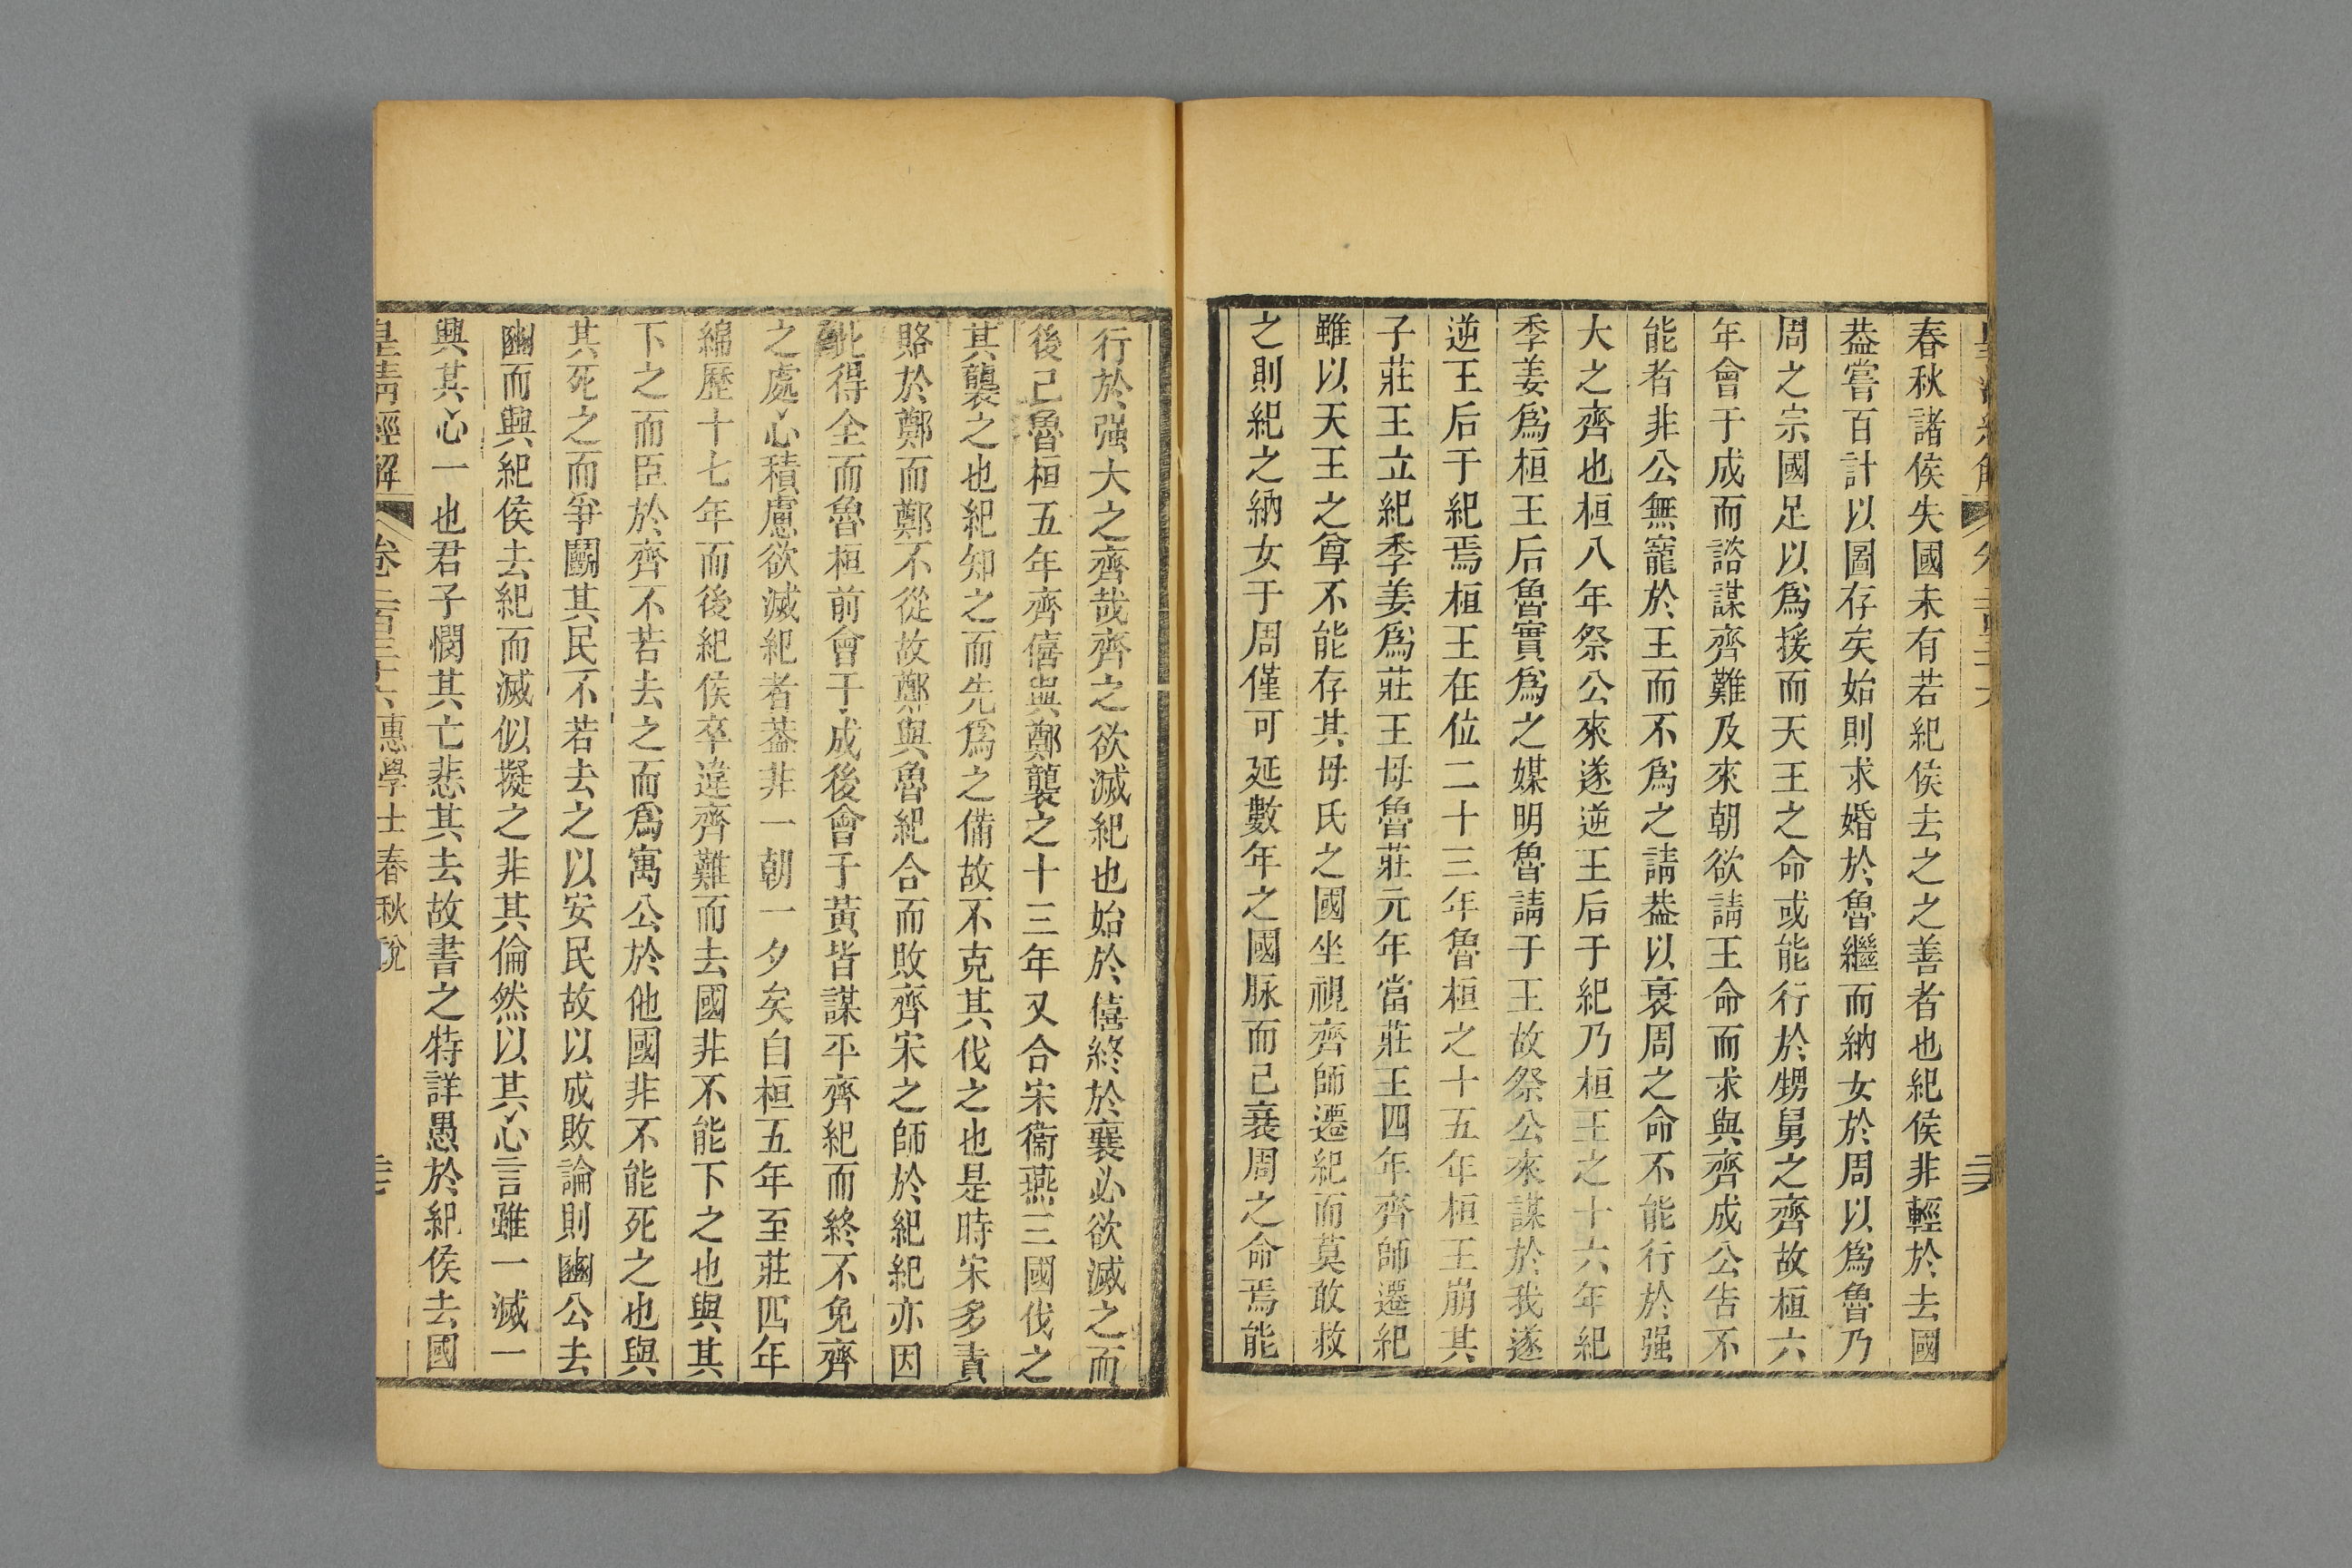 春秋諸侯失國未有若紀侯去之之善者也紀侯非輕於去國
葢嘗百計以圖存矣始則求婚於魯繼而納女於周以爲魯乃
周之宗國足以爲援而天王之命或能行於甥舅之齊故桓六
年會于成而諮謀齊難及來朝欲請王命而求與齊成公告不
能者非公無寵於王而不爲之請葢以衰周之命不能行於强
大之齊也桓八年祭公來遂逆王后于紀乃桓王之十六年紀
季姜爲桓王后魯實爲之媒明魯請于王故祭公來謀於我遂
逆王后于紀焉桓王在位二十三年魯桓之十五年桓王崩其
子莊王立紀季姜爲莊王母魯莊元年當莊王四年齊師遷紀
雖以天王之尊不能存其母氏之國坐視齊師遷紀而莫敢救
之則紀之納女于周僅可延數年之國脉而已衰周之命焉能
行於强大之齊哉齊之欲滅紀也始於僖終於襄必欲滅之而
後已魯桓五年齊僖與鄭襲之十三年又合宋衞燕三國伐之
其襲之也紀知之而先爲之備故不克其伐之也是時宋多責
賂於鄭而鄭不從故鄭與魯紀合而敗齊宋之師於紀紀亦因
此得全而魯桓前會于成後會于黃皆謀平齊紀而終不免齊
之處心積慮欲滅紀者葢非一朝一夕矣自桓五年至莊四年
綿歷十七年而後紀侯卒違齊難而去國非不能下之也與其
下之而臣於齊不若去之而爲寓公於他國非不能死之也與
其死之而爭鬭其民不若去之以安民故以成敗論則豳公去
豳而興紀侯去紀而滅似擬之非其倫然以其心言雖一滅一
興其心一也君子憫其亡悲其去故書之特詳愚於紀侯去國
皇清經解 卷二百三十六 惠學士春秋說